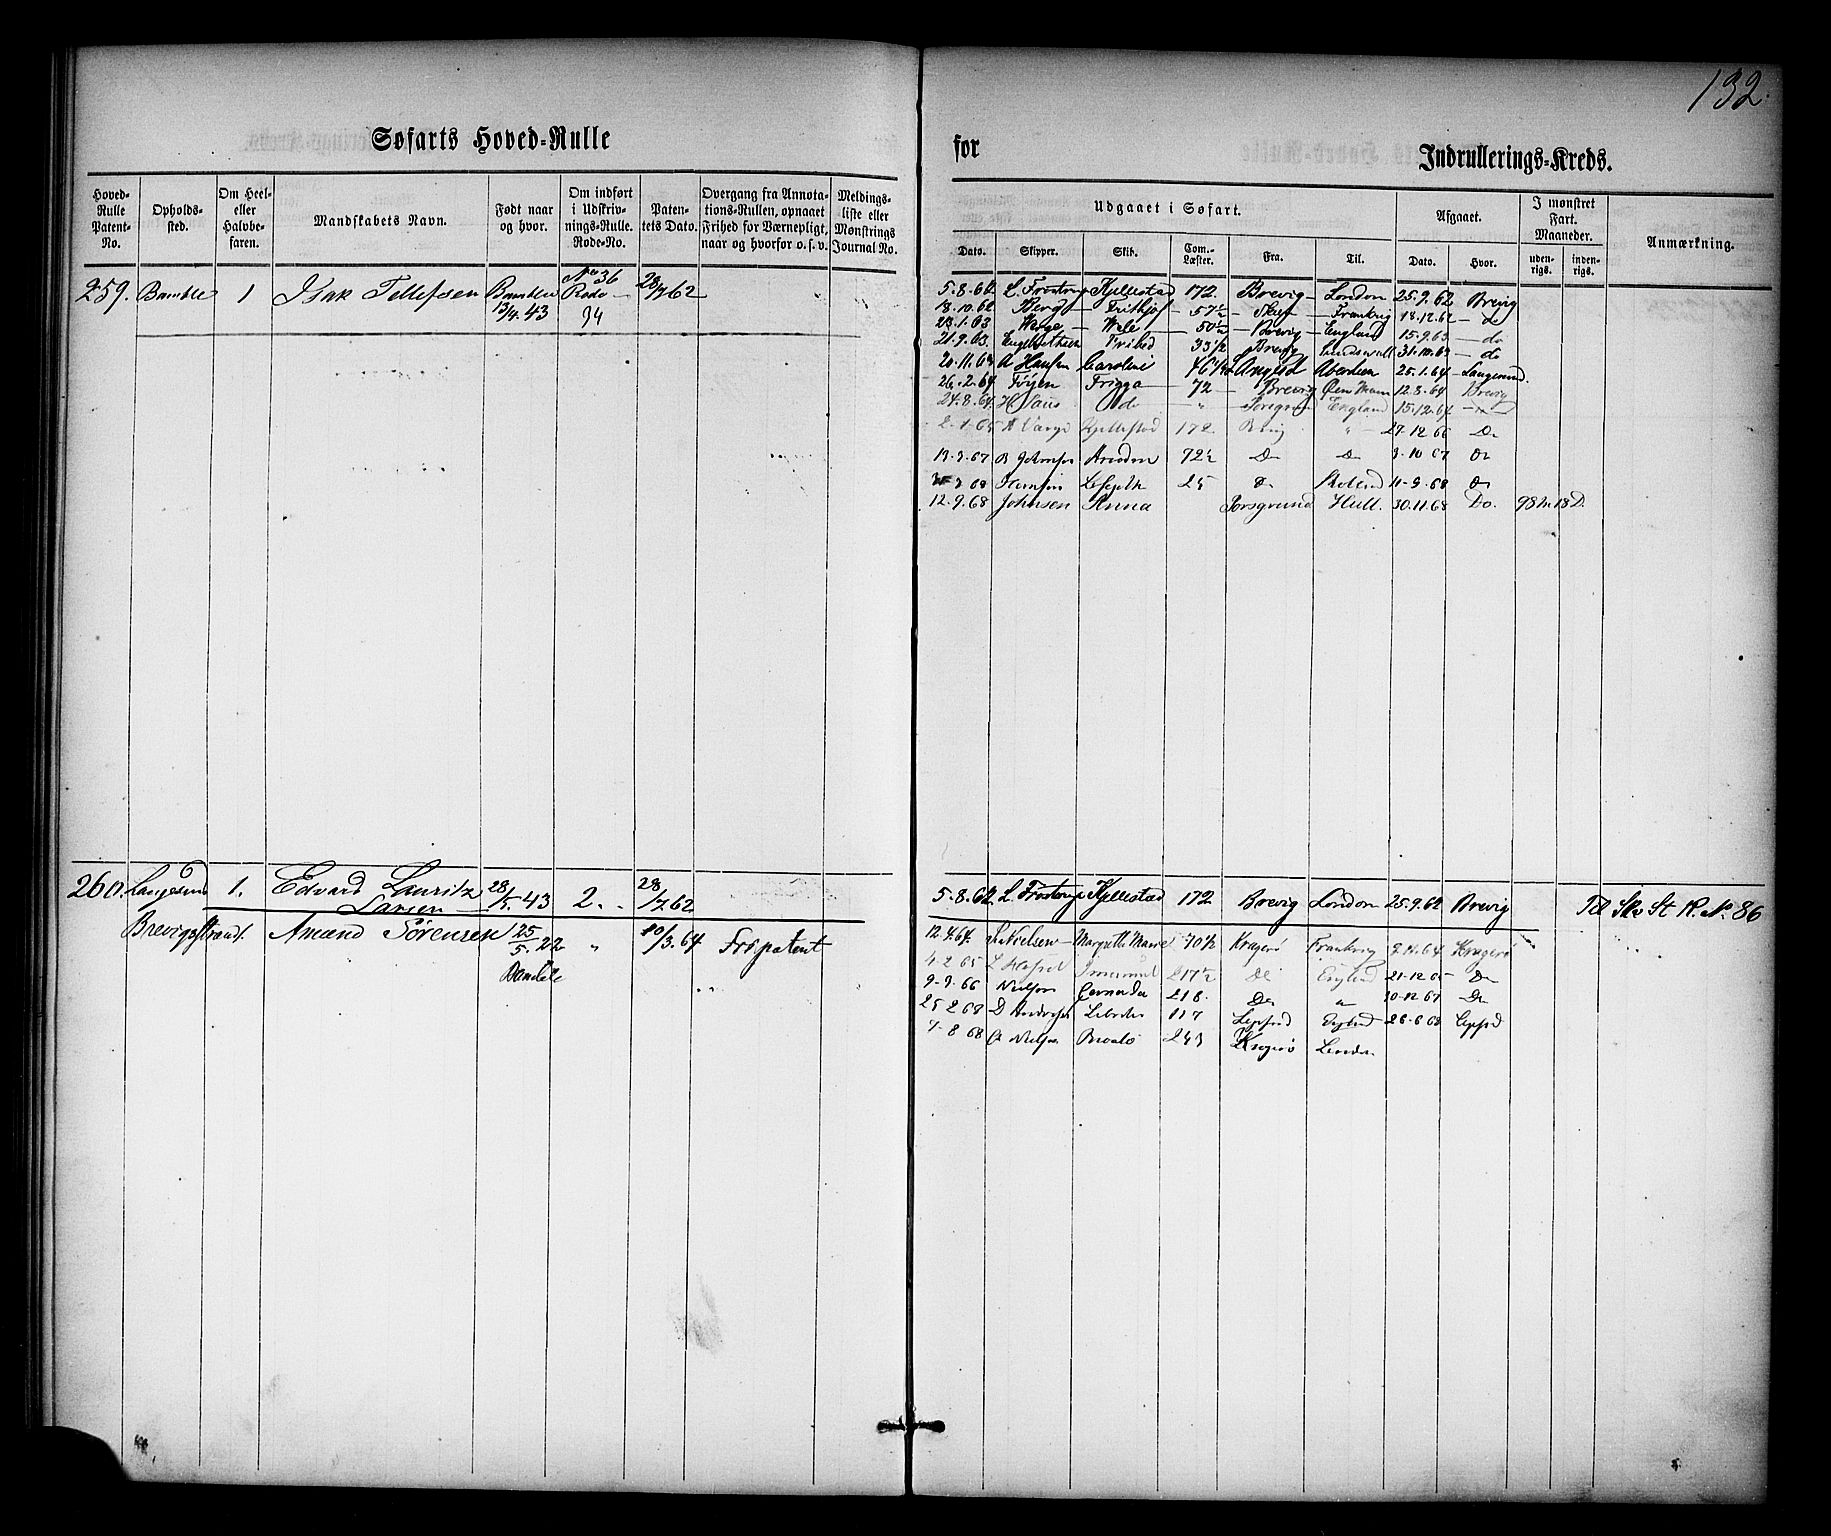 132.
Søfarts Hoved-Rulle
for Indrullerings-Kreds.
Hoved-Rulle Patent-No.
Opholds-sted.
Om Heel- eller Halvbe-faren.
Mandskabets Navn.
Født naar og hvor.
Om indført i Udskriv-nings-Rulle. Rode-No.
Paten-tets Dato.
Overgang fra Annota-tions-Rullen, opnaaet Frihed for Værnepligt, naar og hvorfor o. s. v.
Meldings-liste eller Mønstrings Journal No.
Udgaaet i Søfart.
Afgaaet.
I mønstret Fart. Maaneder.
Anmærkning.
Dato. Skipper. Skib. Com.-Læster. Fra. Til. Dato. Hvor. uden-rigs. inden-rigs.
259. Bamble 1 Isak Tellefsen Bamble 13/4.43 No 36 Rode 94 28/7 62
5.8.62 L. Frostrup Kjellestad 172. Brevig London 25.9.62 Brevig
18.10.62 Berg Frithjof 57½ Skief Frankrig 18.12.62 do
23.1.63 Varge 50½ Brevig England 15.9.63 do
21.9.63 Engebrethsen 33½ Brevig Sundsvall 31.10.63 do
20.11.63 A Hansen Caroline 46½ Langesd Aberdeen 25.1.64 Langesund.
26.2.64 Föyen Frigga 72 Brevig 12.8.64 Brevig
24.8.64 H. do " Porsgrund England 15.12.64
Kjellestad 172 " 27.12 66 Do
13.3.67 72½ Do Do 3-10 67 Do
25 Do 11-9.68 Do
12.9.68 Johnsen Anna Porsgrund Hull. 30.11.68 Do. 98 m 18 D.
260. Langesund 1. Edvard Lauritz Larsen 28/5.43 2. 28/7.62
5.8.62. L. Frostrup Kjellestad 172 Brevig London 25.9.62 Brevig Til Sks St R. No 86
Brevigstrand. Amund Sörensen 25/5.22 " 10/3.64 Fripatent
Bamble
12.4.64. Nielsen Margrethe Marie 70½ Kragerö Frankrig 9.11.64 Kragerö
4.2.65 217½ Do England 21-12 65 Do
9-9.66 Nielsen 218. Do " 10-12 67 Do
25 2 68 117 England 26-6 68
7-8 68 Nielsen 243 Kragerö London